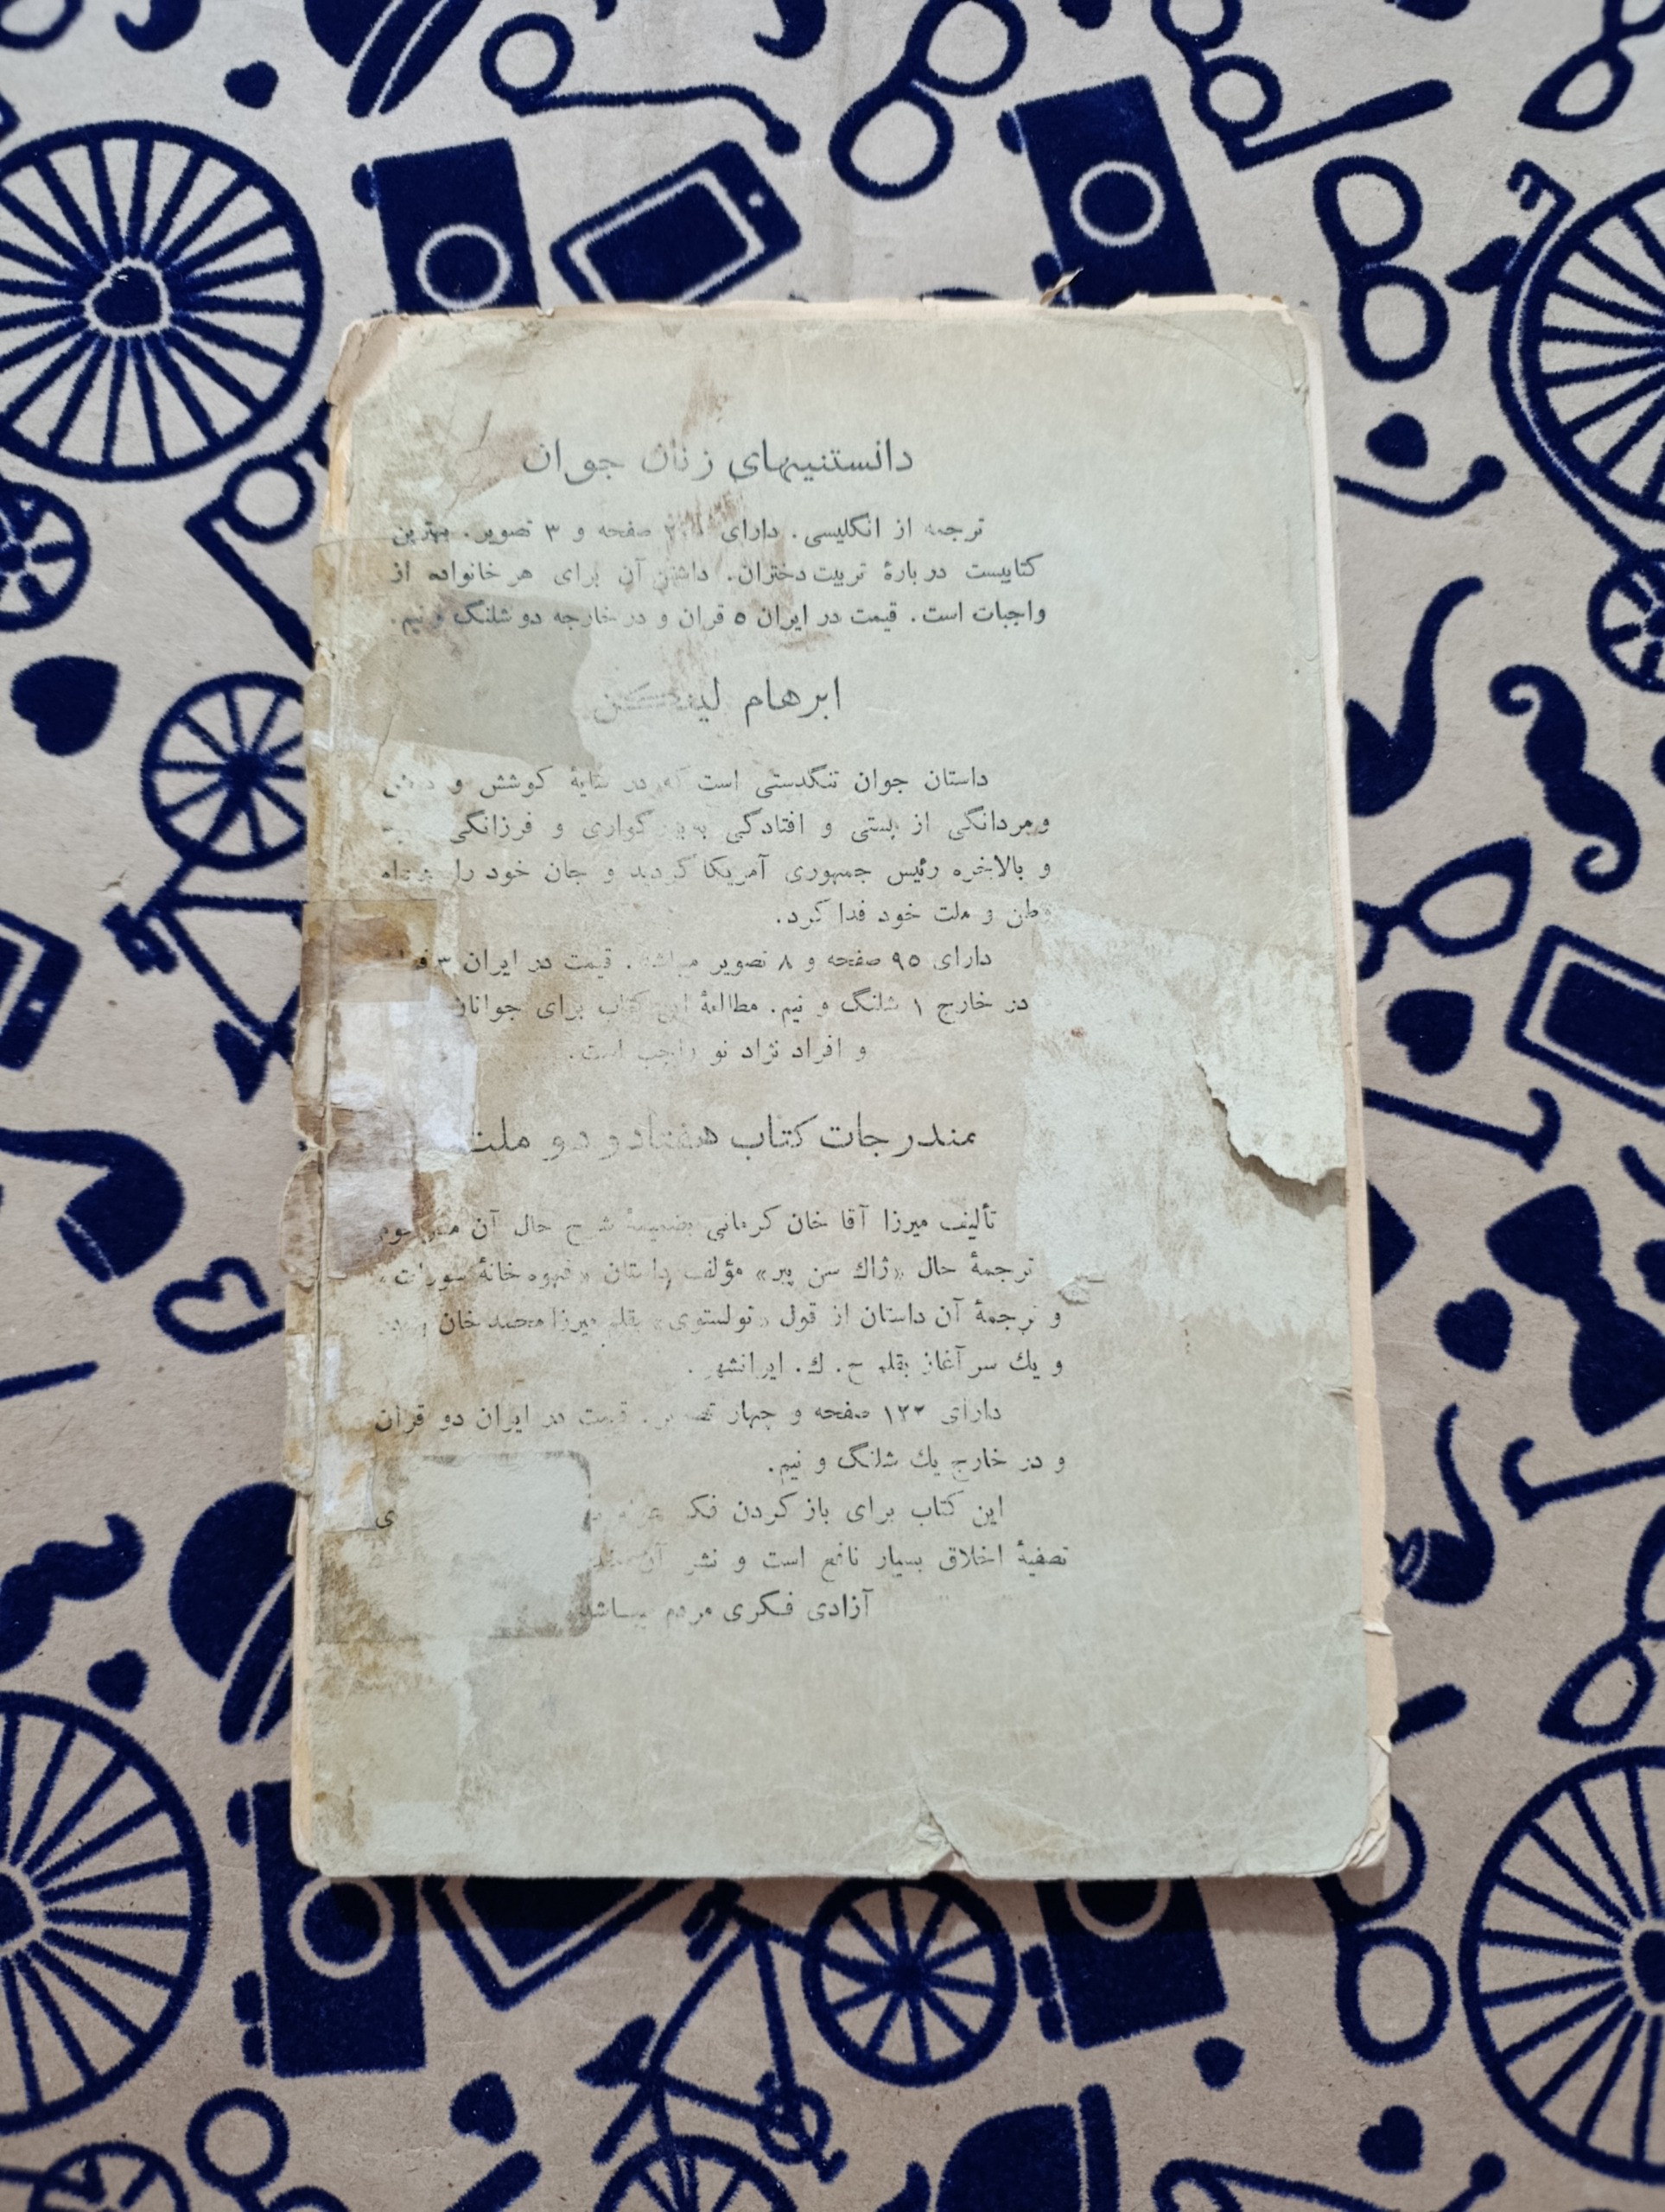 دانستنیهای زنان جوان
ترجمه از انگلیسی. دارای صفحه و ۳ تصویر. بهترین
کتابیست در بارهٔ تربیت دختران. داشتن آن برای هر خانواده از
واجبات است. قیمت در ایران ۵ قران و در خارجه دو شلنگ و نیم.
ابرهام لینکن
داستان جوان تنگدستی است که در سایهٔ کوشش و
و مردانگی از پستی و افتادگی به بزرگواری و فرزانگی
و بالاخره رئیس جمهوری آمریکا گردید و جان خود را
وطن و ملت خود فدا کرد.
دارای ۹۵ صفحه و ۸ تصویر میباشد. قیمت در ایران ۳
در خارج ۱ شلنگ و نیم. مطالعهٔ این کتاب برای جوانان
و افراد نژاد نو واجب است.
مندرجات کتاب هفتاد و دو ملت
تألیف میرزا آقا خان کرمانی بضمیمهٔ شرح حال آن مرحوم
ترجمهٔ حال «ژاك سن پیر» مؤلف داستان «قهوه خانهٔ سورات»
و ترجمهٔ آن داستان از قول «تولستوی» بقلم میرزا محمد خان
و یك سر آغاز بقلم ح. ك. ایرانشهر.
دارای صفحه و چهار تصویر. قیمت در ایران دو قران
و در خارج یك شلنگ و نیم.
این کتاب برای باز کردن فکر
تصفیهٔ اخلاق بسیار نافع است و نشر آن
آزادی فکری مردم میباشد